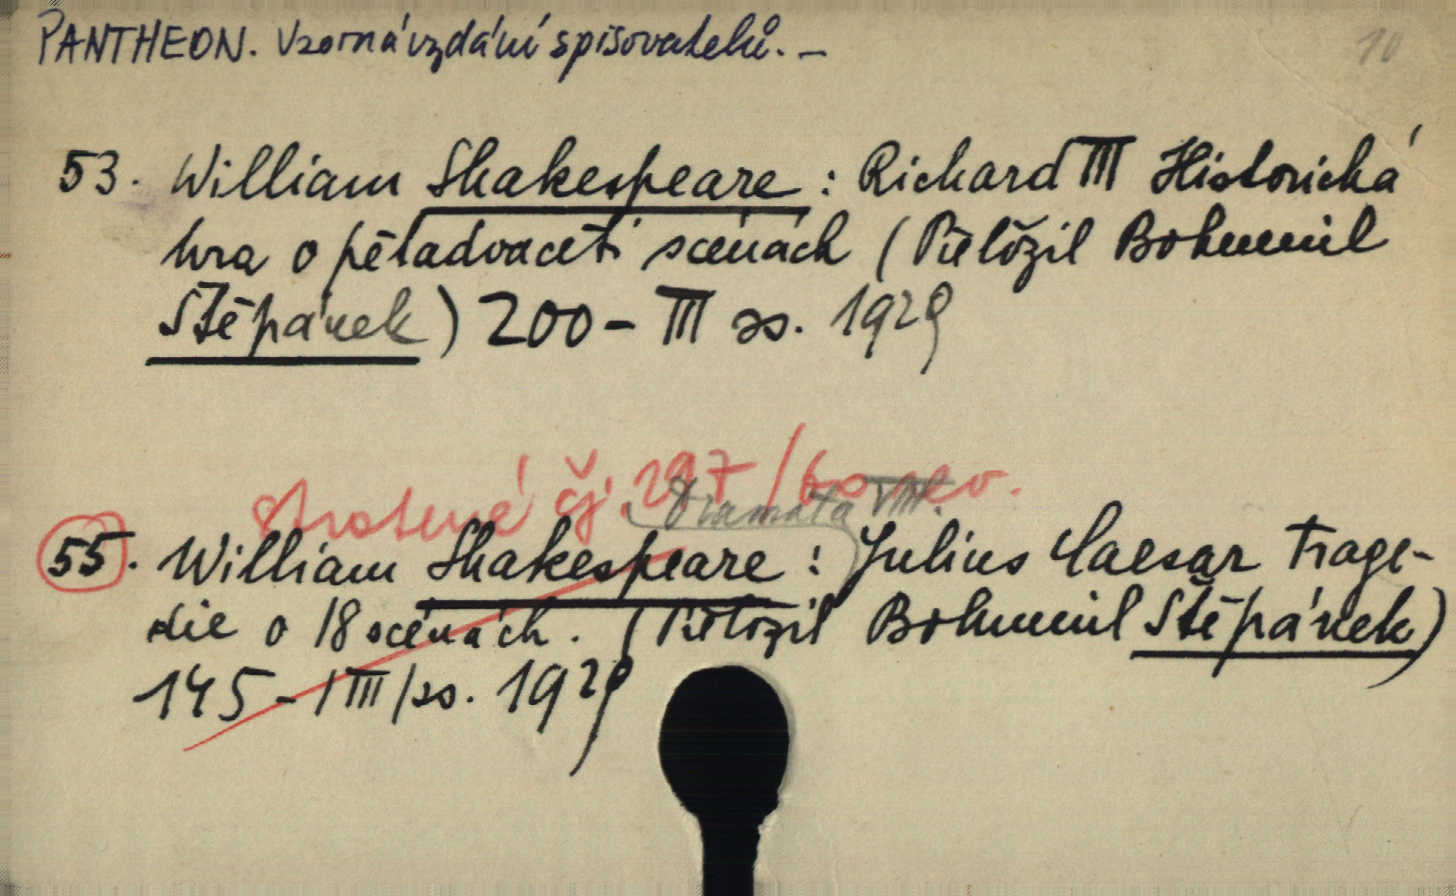 PANTHEON. Vzorná vydání spisovatelů. –
10
53. William Shakespeare : Richard III Historická
hra o pětadvaceti scénách (Přeložil Bohumil
Štěpánek) 200 – III ss. 1929
ztracené čj. 297/60
(Dramata VIII.)
55. William Shakespeare : Julius Caesar Trage-
die o 18 scénách. (Přeložil Bohumil Štěpánek)
145 – /III/ ss. 1929